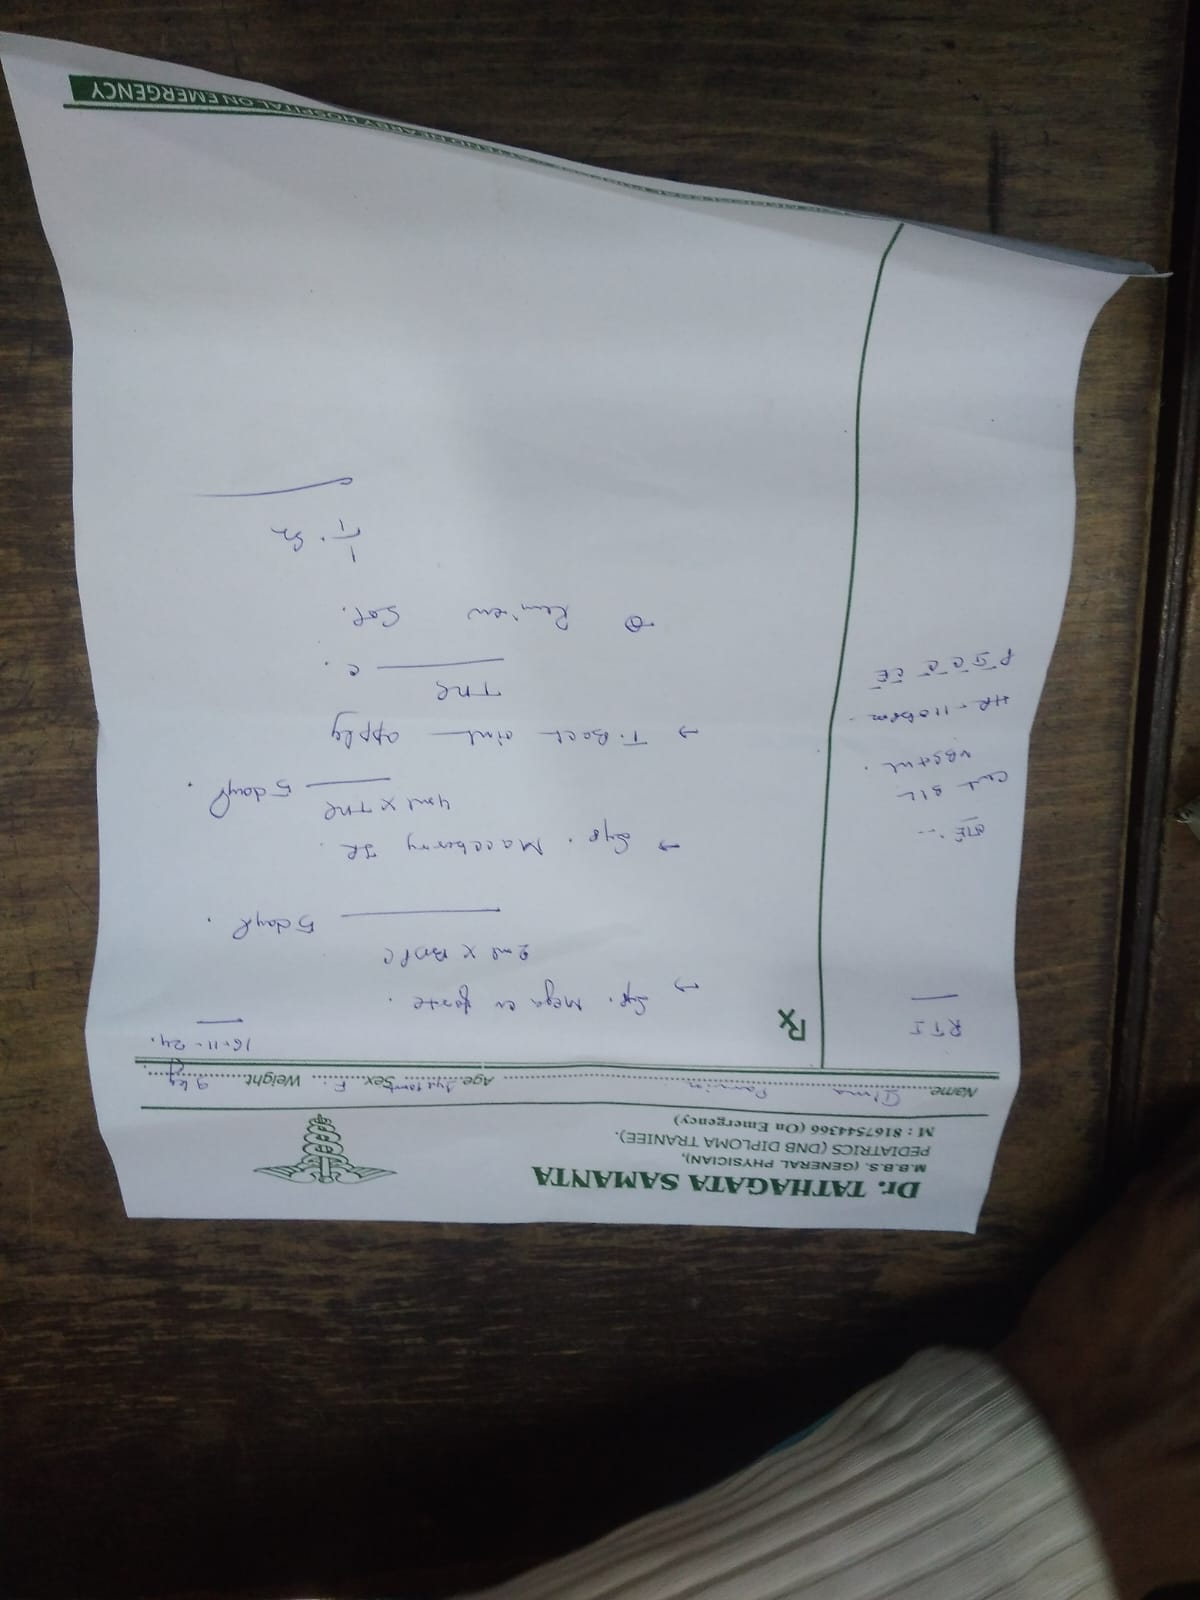 Dr. TATHAGATA SAMANTA
M.B.B.S. (GENERAL PHYSICIAN),
PEDIATRICS (DNB DIPLOMA TRANIEE).
M : 8167544366 (On Emergency)
Name Parvin Age Sex F. Weight 9 kg
16-11-24.
RTI
Rx
→ Syp. Mega cv forte.
2ml x BDPC
5 days.
→ Syp. Maccberry JR.
4ml x TNR
5 days.
→ T-Bact oint apply
TNR
Review Sos.
O/E :-
Chest B/L
VBS+nt.
HR - 110bpm
P I C C L E
HOSPITAL ON EMERGENCY